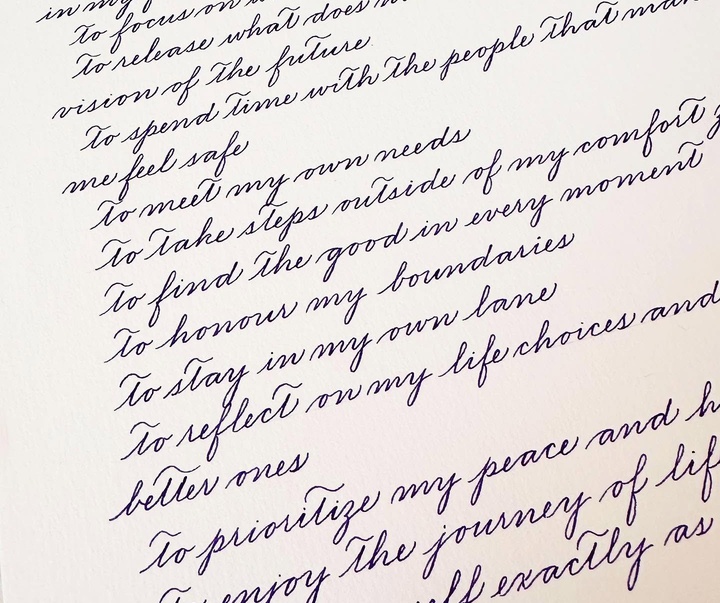 in my
To focus on
To release what does
vision of the future
To spend time with the people that
me feel safe
To meet my own needs
To take steps outside of my comfort
To find the good in every moment
To honour my boundaries
To stay in my own lane
To reflect on my life choices and
better ones
To prioritize my peace and
To enjoy the journey of
exactly as